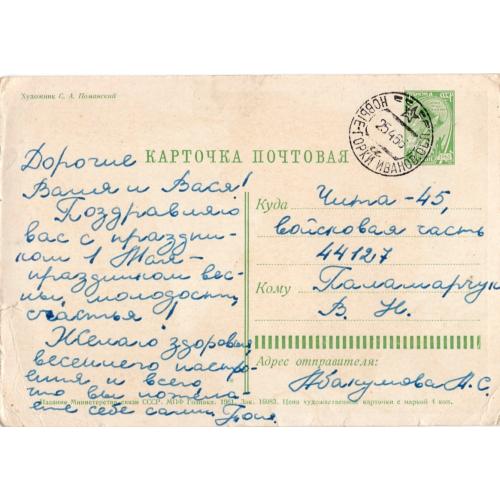 Художник С. А. Поманский
КАРТОЧКА ПОЧТОВАЯ
НОВЫЕ-ГОРКИ ИВАНОВ.ОБЛ.
Дорогие
Валя и Вася!
Поздравляю
вас с праздни-
ком 1 Мая -
праздником вес-
ны, молодости,
счастья!
Желаю здоровья,
весеннего настро-
ения и всего,
что вы пожела-
ете себе сами. Тося.
Куда Чита-45,
войсковая часть
44127
Кому Паламарчук
В. Н.
Адрес отправителя:
Абакумова А. С.
Издание Министерства связи СССР. МПФ Гознака. 1961. Зак. 16083. Цена художественной карточки с маркой 4 коп.